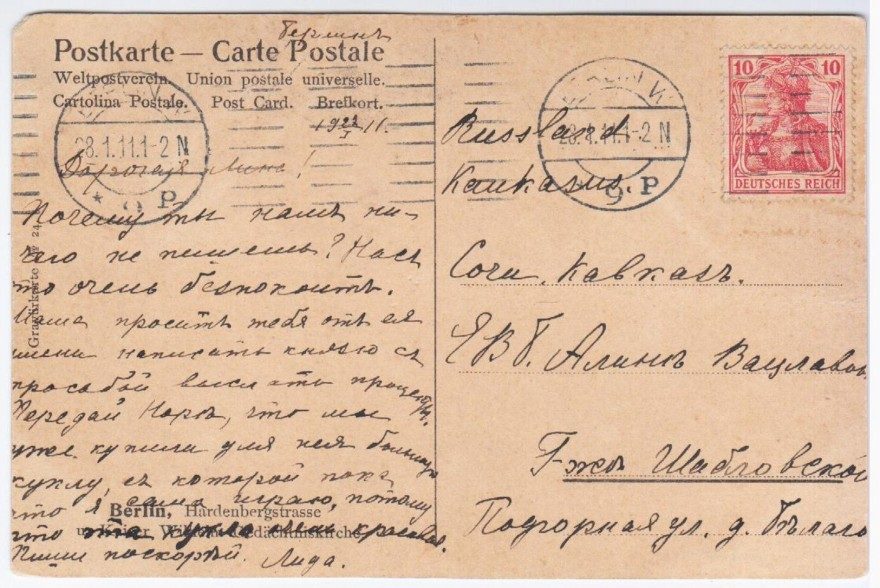 Берлинъ
Postkarte — Carte Postale
Weltpostverein. Union postale universelle.
Cartolina Postale. Post Card. Brefkort.
19 22/I 11.
Дорогая Лина!
Почему ты намъ ни-
чего не пишешь? Насъ
это очень безпокоитъ.
Мама проситъ тебя отъ ея
имени написать князю съ
просьбой выслать проценты.
Передай Норѣ, что мы
уже купили для нея большую
куклу, съ которой пока
что я сама играю, потому
что эта кукла очень красивая.
Пиши поскорѣй. Лида.
Berlin, Hardenbergstrasse
Gravürkarte № 24
28.1.11.1-2 N
* 9 P
BERLIN W.
28.1.11.1-2 N
9. P
10 10
DEUTSCHES REICH
Russland
Kaukasus.
Сочи. Кавказъ.
ЕВБ. Алинѣ Вацлавов
Г-жѣ Шабловской
Подгорная ул. д. Бѣлаго